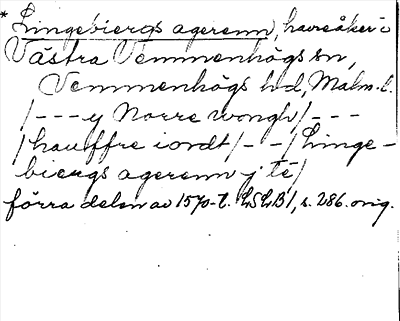 * Lingebiergs agerenn, havreåker i
Västra Vemmenhögs sn,
Vemmenhögs hd, Malm. l.
/---y Norre wongh/---
/hauffre iordt/--/Linge-
biergs agerenn j té/
förra delen av 1570-t. LSLB1, s. 286. orig.